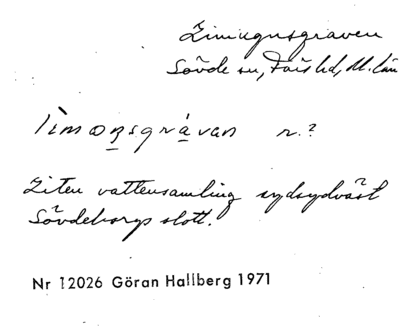 Limugnsgraven
Sövde sn, Färs hd, M. län
limonsgrávan n.?
Liten vattensamling sydsydväst
Sövdeborgs slott.
Nr 12026 Göran Hallberg 1971